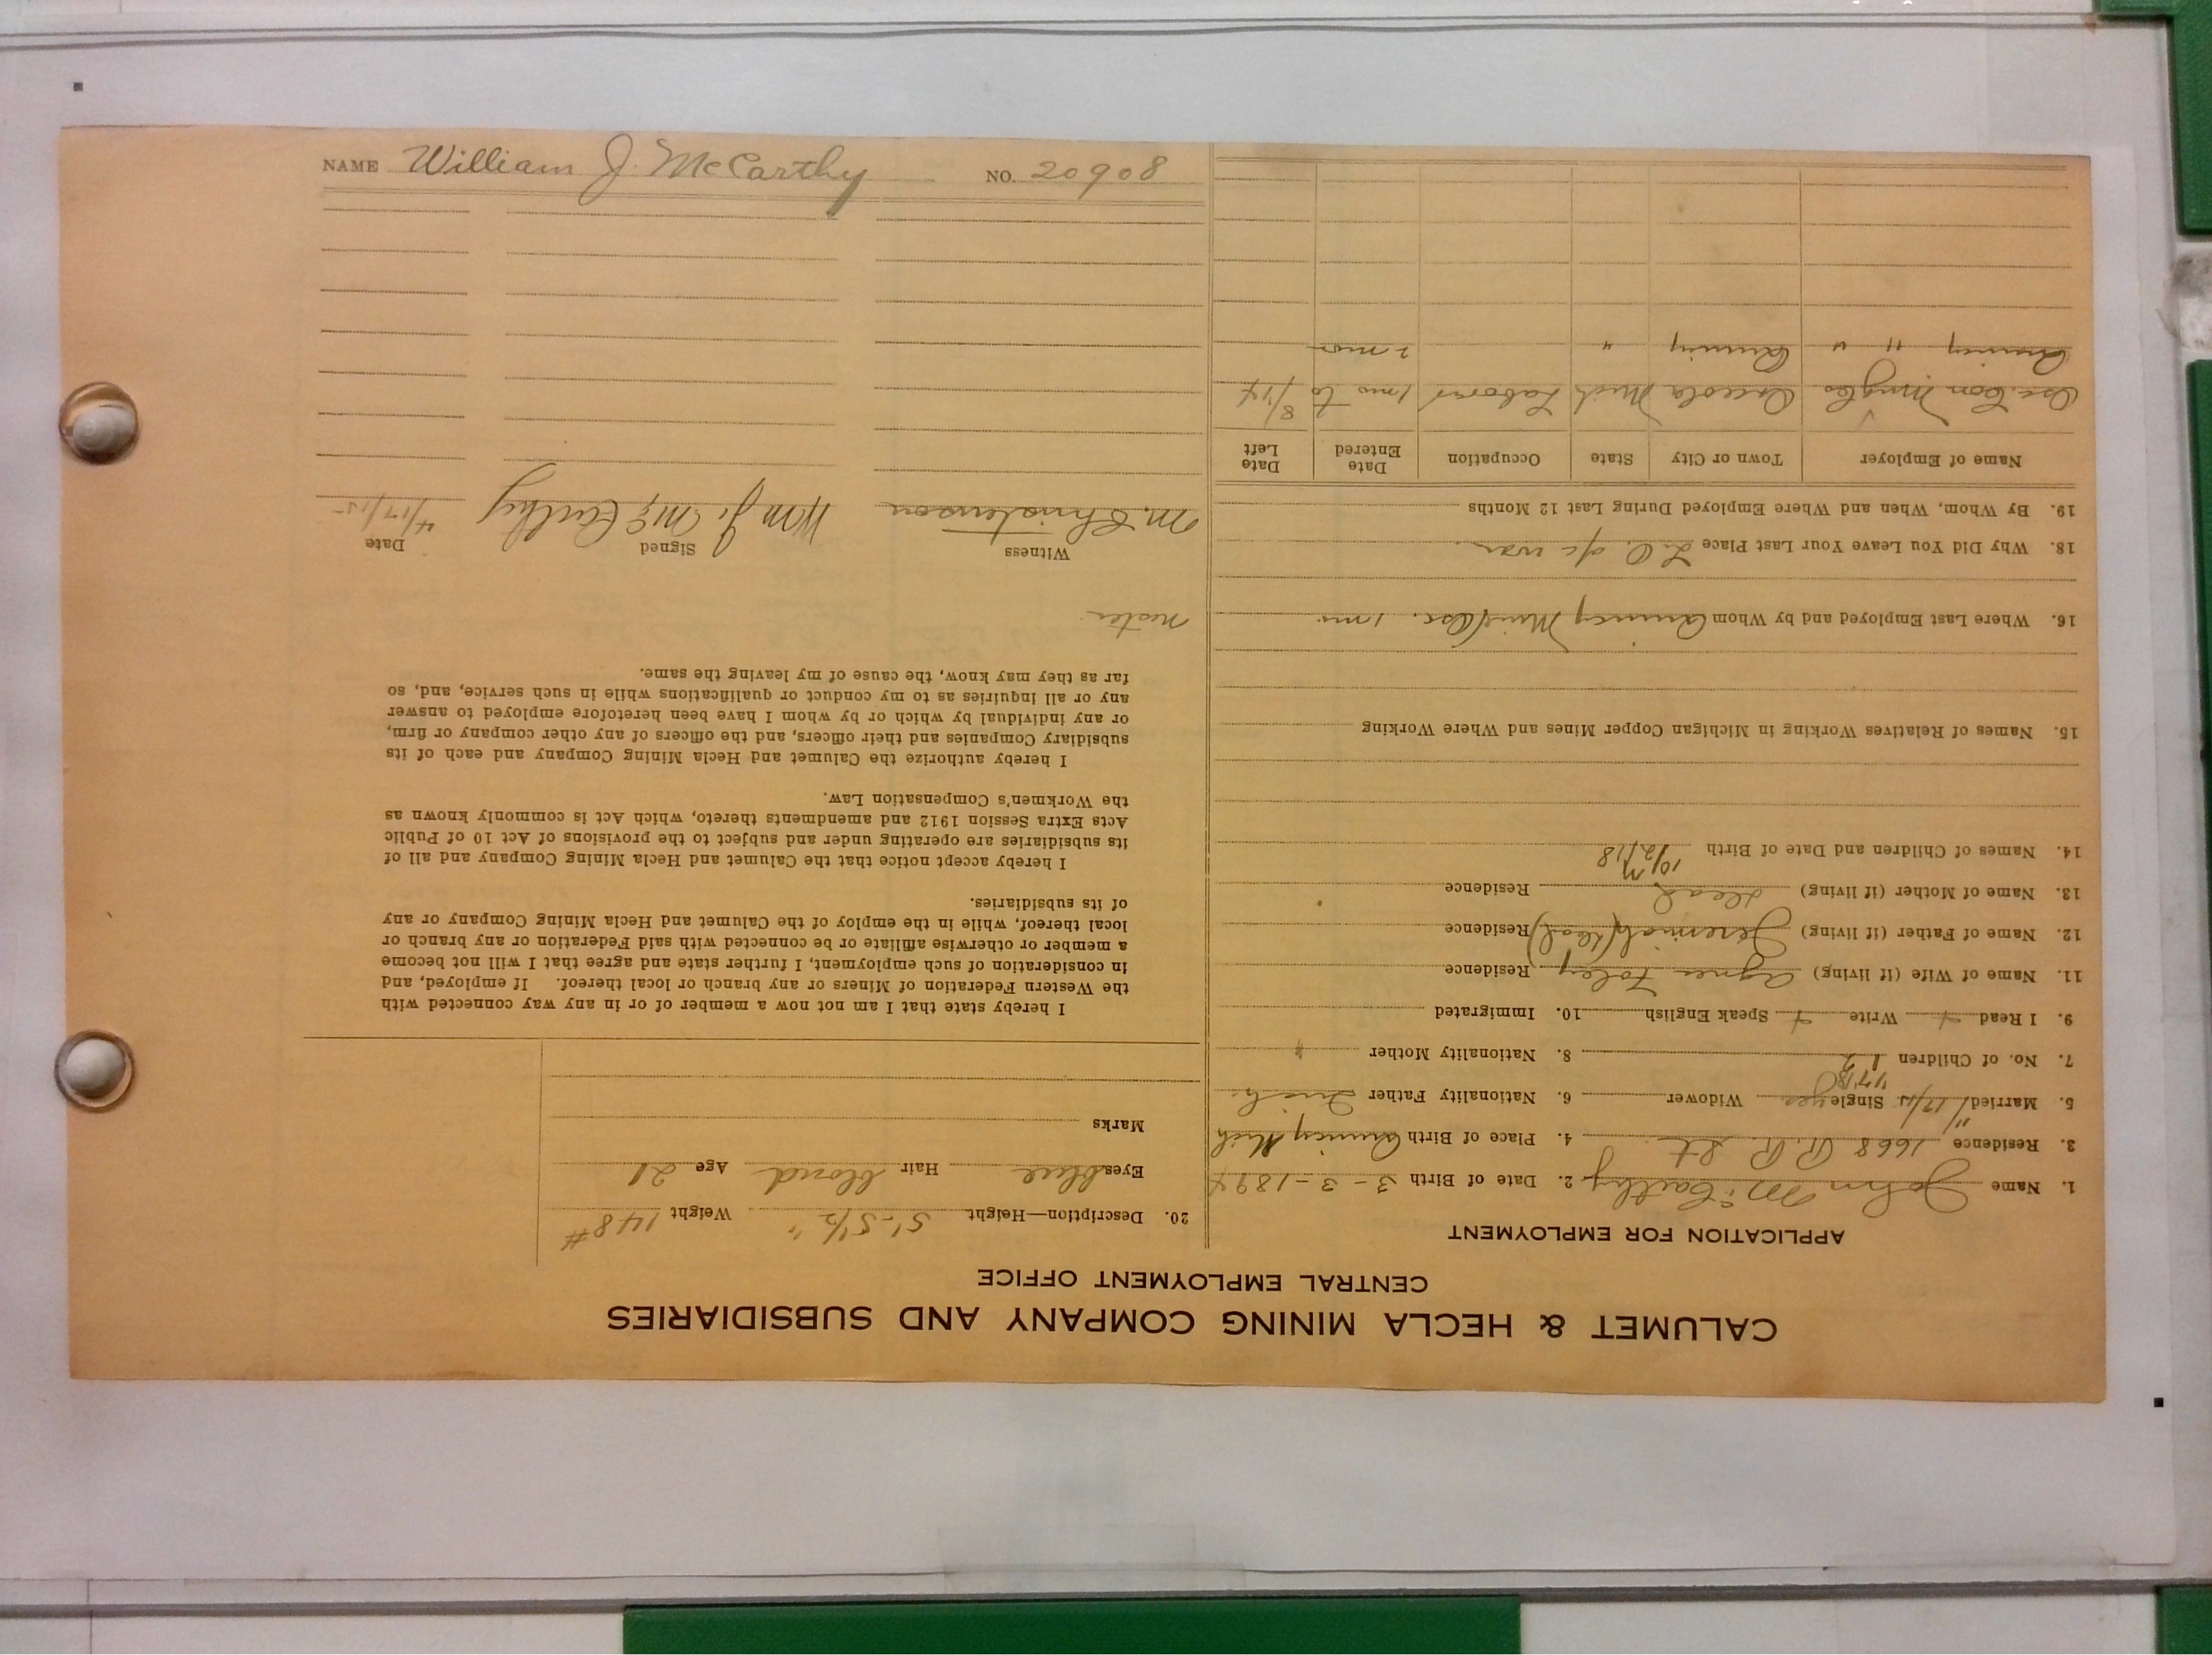 NAME William J. McCarthy NO. 20908
CALUMET & HECLA MINING COMPANY AND SUBSIDIARIES
CENTRAL EMPLOYMENT OFFICE
APPLICATION FOR EMPLOYMENT
1. Name John McCarthy 2. Date of Birth 3-3-1894
3. Residence 1668 R.R. St 4. Place of Birth Quincy Mich
5. Married Single yes Widower 6. Nationality Father Irish
7. No. of Children 1 2 8. Nationality Mother "
9. I Read + Write + Speak English 10. Immigrated
11. Name of Wife (if living) Agnes Foley Residence
12. Name of Father (if living) Jeremiah (dead) Residence
13. Name of Mother (if living) dead Residence
14. Names of Children and Date of Birth
15. Names of Relatives Working in Michigan Copper Mines and Where Working
16. Where Last Employed and by Whom Quincy 1 mo.
18. Why Did You Leave Your Last Place L.O. a/c war
19. By Whom, When and Where Employed During Last 12 Months
Name of Employer Town or City State Occupation Date Entered Date Left
Osc. Con Mng Co Osceola Mich Labor 1 mo to 8/14
Quincy " " Quincy " 2 mos
20. Description—Height 5'-5½" Weight 148#
Eyes blue Hair blond Age 21
Marks
I hereby state that I am not now a member of or in any way connected with
the Western Federation of Miners or any branch or local thereof. If employed, and
in consideration of such employment, I further state and agree that I will not become
a member or otherwise affiliate or be connected with said Federation or any branch or
local thereof, while in the employ of the Calumet and Hecla Mining Company or any
of its subsidiaries.
I hereby accept notice that the Calumet and Hecla Mining Company and all of
its subsidiaries are operating under and subject to the provisions of Act 10 of Public
Acts Extra Session 1912 and amendments thereto, which Act is commonly known as
the Workmen's Compensation Law.
I hereby authorize the Calumet and Hecla Mining Company and each of its
subsidiary Companies and their officers, and the officers of any other company or firm,
or any individual by which or by whom I have been heretofore employed to answer
any or all inquiries as to my conduct or qualifications while in such service, and, so
far as they may know, the cause of my leaving the same.
Witness Signed Date
M. Christenson Wm J. McCarthy 4/17/15